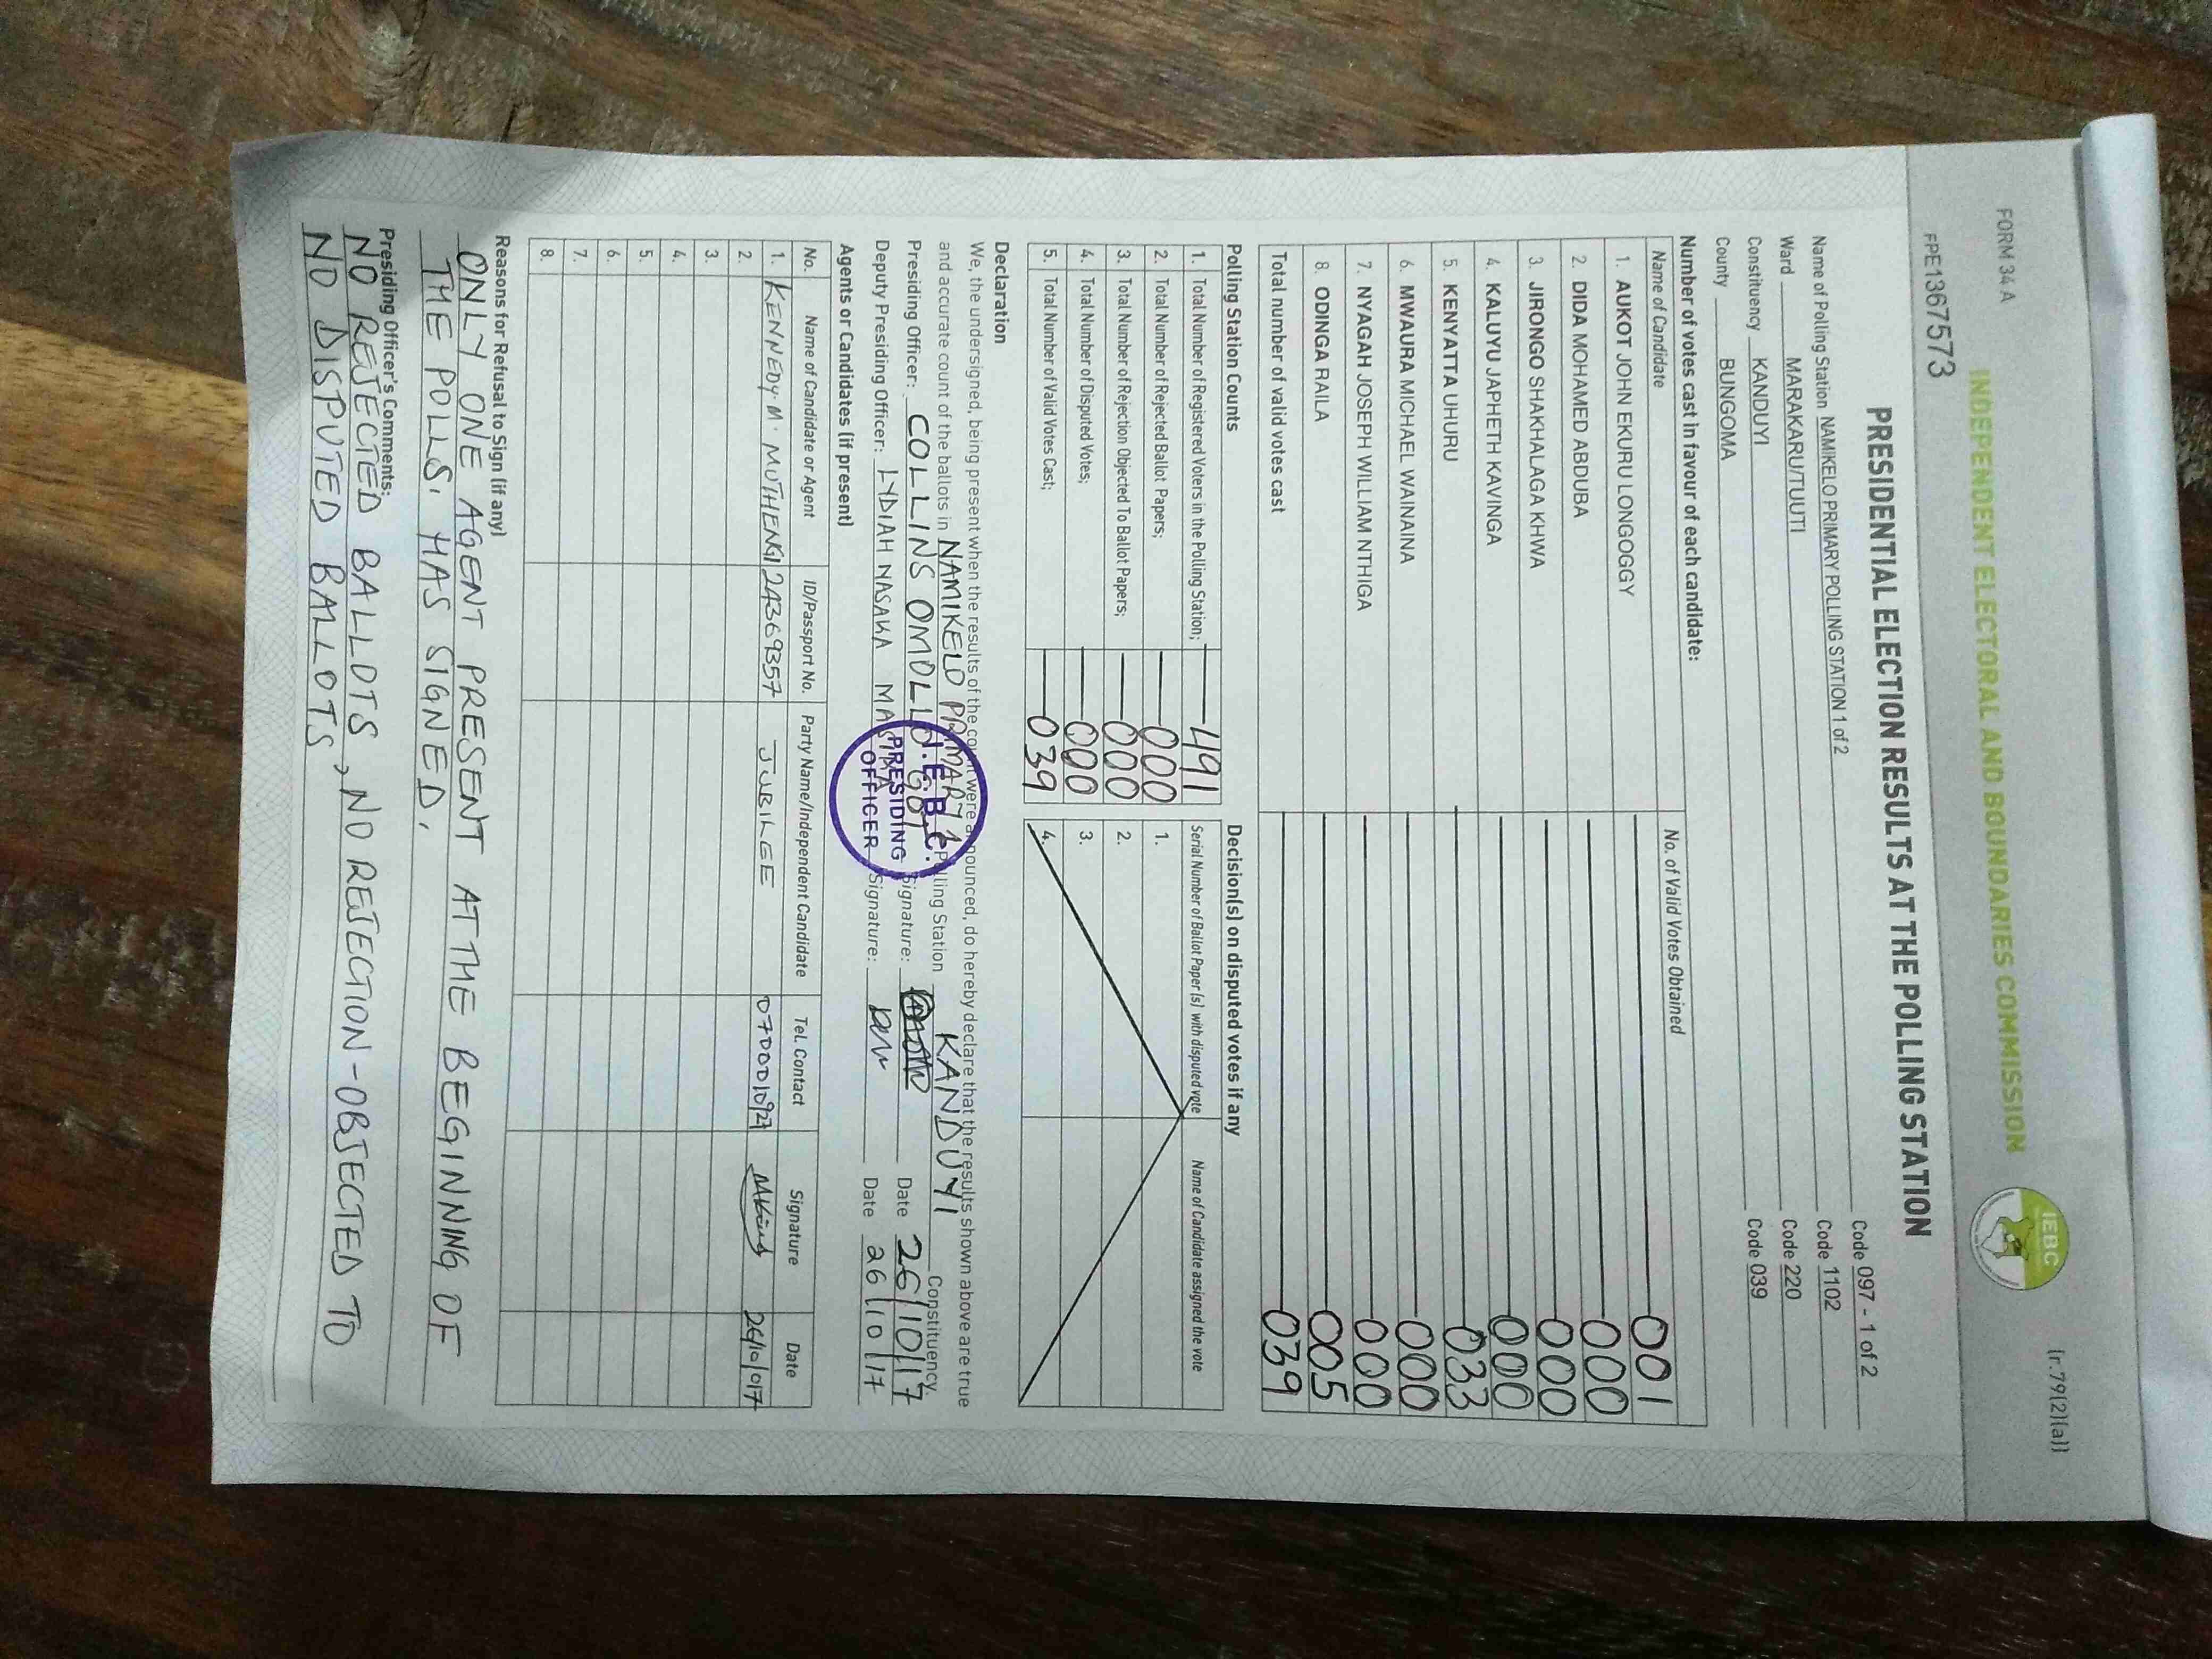 FORM 34 A
(r.79(2)(a))
INDEPENDENT ELECTORAL AND BOUNDARIES COMMISSION
IEBC
FPE1367573
PRESIDENTIAL ELECTION RESULTS AT THE POLLING STATION
Name of Polling Station NAMIKELO PRIMARY POLLING STATION 1 of 2 Code 097 - 1 of 2
Ward MARAKARU/TUUTI Code 1102
Constituency KANDUYI Code 220
County BUNGOMA Code 039
Number of votes cast in favour of each candidate:
Name of Candidate No. of Valid Votes Obtained
1. AUKOT JOHN EKURU LONGOGGY 001
2. DIDA MOHAMED ABDUBA 000
3. JIRONGO SHAKHALAGA KHWA 000
4. KALUYU JAPHETH KAVINGA 000
5. KENYATTA UHURU 033
6. MWAURA MICHAEL WAINAINA 000
7. NYAGAH JOSEPH WILLIAM NTHIGA 000
8. ODINGA RAILA 005
Total number of valid votes cast 039
Polling Station Counts
1. Total Number of Registered Voters in the Polling Station; 491
2. Total Number of Rejected Ballot Papers; 000
3. Total Number of Rejection Objected To Ballot Papers; 000
4. Total Number of Disputed Votes; 000
5. Total Number of Valid Votes Cast; 039
Decision(s) on disputed votes if any
Serial Number of Ballot Paper(s) with disputed vote Name of Candidate assigned the vote
1.
2.
3.
4.
Declaration
We, the undersigned, being present when the results of the count were announced, do hereby declare that the results shown above are true
and accurate count of the ballots in NAMIKELO PRIMARY 1 Polling Station KANDUYI Constituency.
Presiding Officer: COLLINS Signature: Date 26/10/17
Deputy Presiding Officer: LYDIAH NASAKA Signature: Date 26/10/17
I.E.B.C.
PRESIDING
OFFICER
Agents or Candidates (if present)
No. Name of Candidate or Agent ID/Passport No. Party Name/Independent Candidate Tel. Contact Signature Date
1. KENNEDY M. MUTHENGI 24369357 JUBILEE 26/10/017
2.
3.
4.
5.
6.
7.
8.
Reasons for Refusal to Sign (if any)
ONLY ONE AGENT PRESENT AT THE BEGINNING OF
THE POLLS. HAS SIGNED.
Presiding Officer's Comments:
NO REJECTED BALLOTS, NO REJECTION-OBJECTED TO
NO DISPUTED BALLOTS